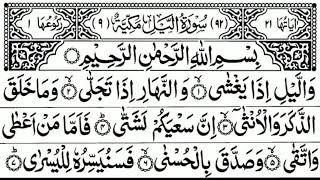 اٰیَاتُهَا ٢١ (٩٢) سُوْرَةُ الَّیْلِ مَكِّیَّةٌ (٩) رُكُوْعُهَا ١
بِسْمِ اللّٰهِ الرَّحْمٰنِ الرَّحِیْمِ
وَالَّیْلِ اِذَا یَغْشٰی ۙ‏﴿١﴾ وَالنَّهَارِ اِذَا تَجَلّٰی ۙ‏﴿٢﴾ وَمَا خَلَقَ
الذَّكَرَ وَالْاُنْثٰۤی ۙ‏﴿٣﴾ اِنَّ سَعْیَكُمْ لَشَتّٰی ؕ‏﴿٤﴾ فَاَمَّا مَنْ اَعْطٰی
وَاتَّقٰی ۙ‏﴿٥﴾ وَصَدَّقَ بِالْحُسْنٰی ۙ‏﴿٦﴾ فَسَنُیَسِّرُهٗ لِلْیُسْرٰی ؕ‏﴿٧﴾